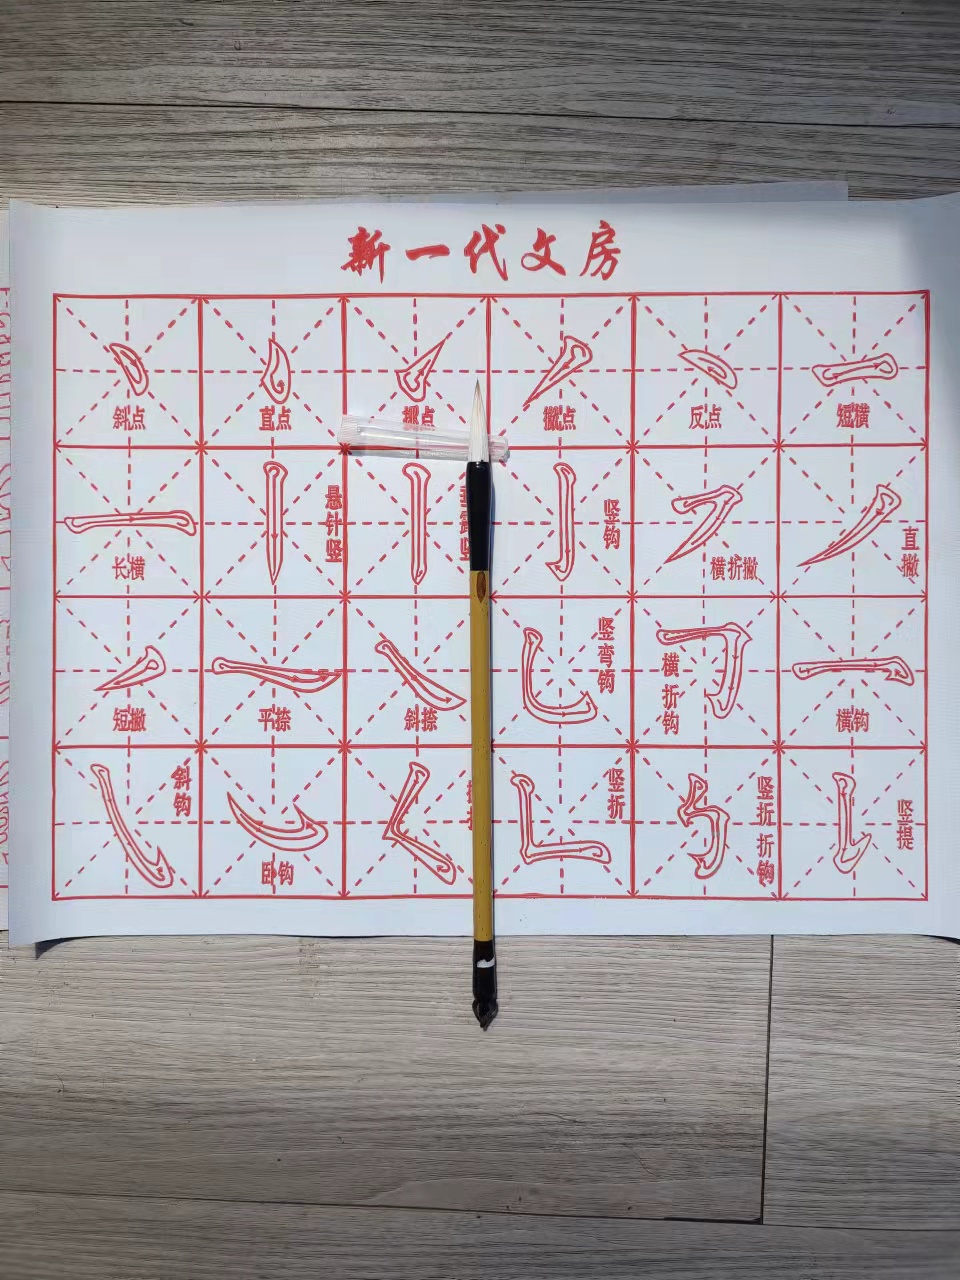 新一代文房
斜点
直点
挑点
撇点
反点
短横
长横
悬针竖
竖钩
横折撇
直撇
短撇
平捺
斜捺
竖弯钩
横折钩
横钩
斜钩
卧钩
竖折
竖折折钩
竖提